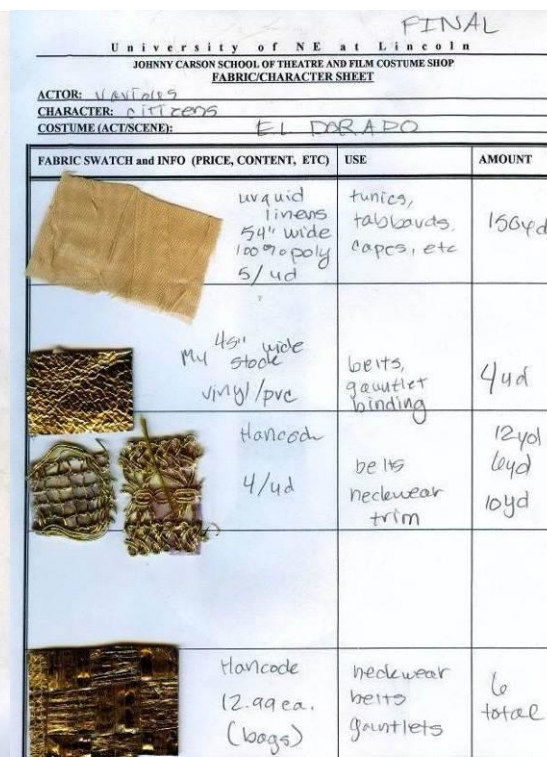 FINAL
University of NE at Lincoln
JOHNNY CARSON SCHOOL OF THEATRE AND FILM COSTUME SHOP
FABRIC/CHARACTER SHEET
ACTOR: various
CHARACTER: citizens
COSTUME (ACT/SCENE): EL DORADO
FABRIC SWATCH and INFO (PRICE, CONTENT, ETC) USE AMOUNT
linens
54" wide
100% poly
5/yd
tunics,
tabbards,
capes, etc
150yd
45" wide
My stock
vinyl/pvc
belts,
gauntlet
binding
4yd
Hancock
4/yd
belts
neckwear
trim
12yd
6yd
10yd
Hancock
12.99 ea.
(bags)
neckwear
belts
gauntlets
6
total